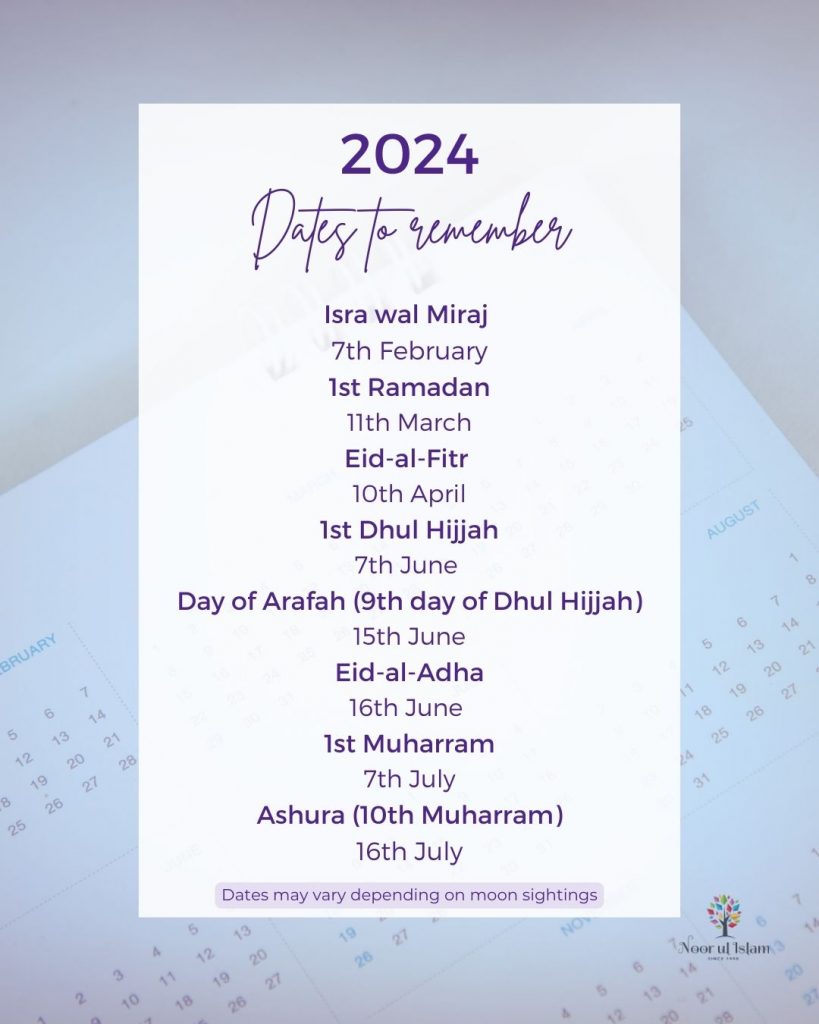 2024
Dates to remember
Isra wal Miraj
7th February
1st Ramadan
11th March
Eid-al-Fitr
10th April
1st Dhul Hijjah
7th June
Day of Arafah (9th day of Dhul Hijjah)
15th June
Eid-al-Adha
16th June
1st Muharram
7th July
Ashura (10th Muharram)
16th July
Dates may vary depending on moon sightings
Noor ul Islam
AUGUST